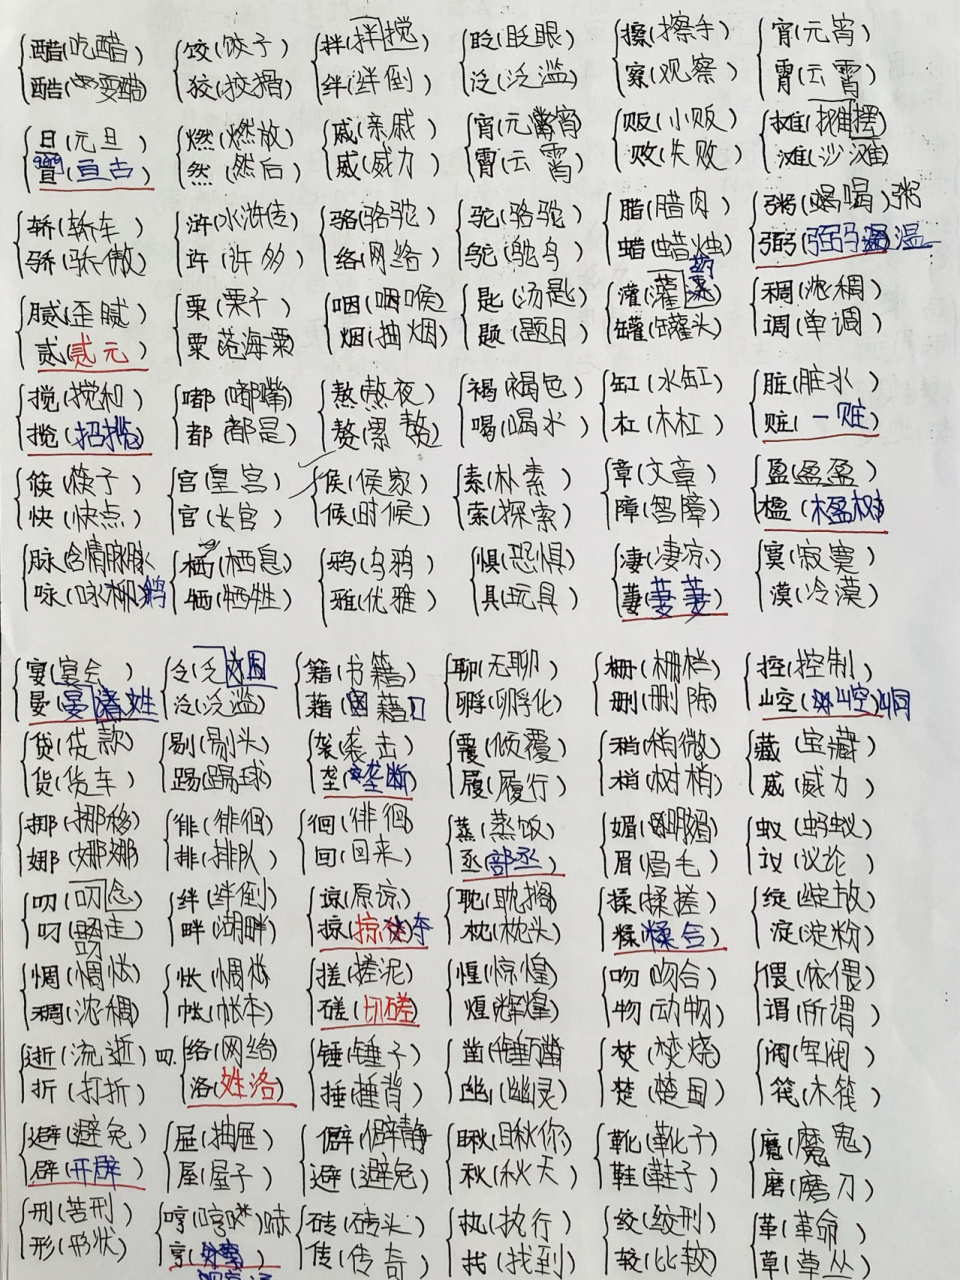 醋(吃醋) 饺(饺子) 拌(拌搅) 眨(眨眼) 擦(擦手) 宵(元宵)
酷(耍酷) 狡(狡猾) 绊(绊倒) 泛(泛滥) 察(观察) 霄(云霄)
旦(元旦) 燃(燃放) 戚(亲戚) 宵(元宵) 贩(小贩) 摊(摊摆)
亘(亘古) 然(然后) 威(威力) 霄(云霄) 败(失败) 滩(沙滩)
轿(轿车) 浒(水浒传) 骆(骆驼) 驼(骆驼) 腊(腊肉) 粥(喝粥)
骄(骄傲) 许(许多) 络(网络) 鸵(鸵鸟) 蜡(蜡烛)
腻(歪腻) 栗(栗子) 咽(咽喉) 匙(汤匙) 灌(灌 稠(浓稠)
贰(贰元) 粟(沧海粟) 烟(抽烟) 题(题目) 罐(罐头) 调(单调)
搅(搅和) 嘟(嘟嘴) 熬(熬夜) 褐(褐色) 缸(水缸) 脏(脏水)
揽(招揽) 都(都是) 赘(累赘) 喝(喝水) 杠(木杠) 赃(一赃)
筷(筷子) 宫(皇宫) 侯(侯家) 素(朴素) 章(文章) 盈(盈盈)
快(快点) 官(长官) 候(时候) 索(探索) 障(智障) 楹(楹树)
脉(含情脉脉) 栖(栖息) 鸦(乌鸦) 惧(恐惧) 凄(凄凉) 寞(寂寞)
咏(咏鹅) 牺(牺牲) 雅(优雅) 具(玩具) 萋(萋萋) 漠(冷漠)
宴(宴会) 籍(书籍) 聊(无聊) 栅(栅栏) 控(控制)
晏(晏 姓 泛(泛滥) 藉( 藉) 孵(孵化) 删(删除) 崆(崆)峒
贷(贷款) 剔(剔头) 袭(袭击) 覆(倾覆) 稍(稍微) 藏(宝藏)
货(货车) 踢(踢球) 垄(垄断) 履(履行) 梢(树梢) 威(威力)
挪(挪移) 徘(徘徊) 徊(徘徊) 蒸(蒸饭) 媚(明媚) 蚁(蚂蚁)
娜(娜娜) 排(排队) 回(回来) 丞(部丞) 眉(眉毛) 议(议论)
叨(叨念) 绊(绊倒) 谅(原谅) 耽(耽搁) 揉(揉搓) 绽(绽放)
叼(叼走) 畔(湖畔) 掠(掠夺) 枕(枕头) 糅(糅合) 淀(淀粉)
惆(惆怅) 怅(惆怅) 搓(搓泥) 惶(惊惶) 吻(吻合) 偎(依偎)
稠(浓稠) 帐(帐本) 磋(切磋) 煌(辉煌) 物(动物) 谓(所谓)
逝(流逝) 四. 络(网络) 锤(锤子) 凿( 凿) 焚(焚烧) 阀(军阀)
折(打折) 洛(姓洛) 捶(捶背) 幽(幽灵) 楚(楚国) 筏(木筏)
避(避免) 屉(抽屉) 僻(僻静) 瞅(瞅你) 靴(靴子) 魔(魔鬼)
辟(开辟) 屋(屋子) 避(避免) 秋(秋天) 鞋(鞋子) 磨(磨刀)
刑(苦刑) 哼(哼哧)哧 砖(砖头) 执(执行) 绞(绞刑) 革(革命)
形(形状) 亨( 传(传奇) 找(找到) 较(比较) 草(草丛)